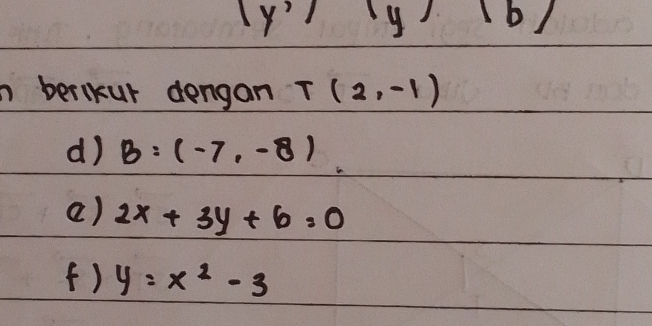 (y') (y) (b)
berikut dengan T (2,-1)
d) B = (-7, -8)
e) 2x + 3y + 6 = 0
f) y = x² - 3